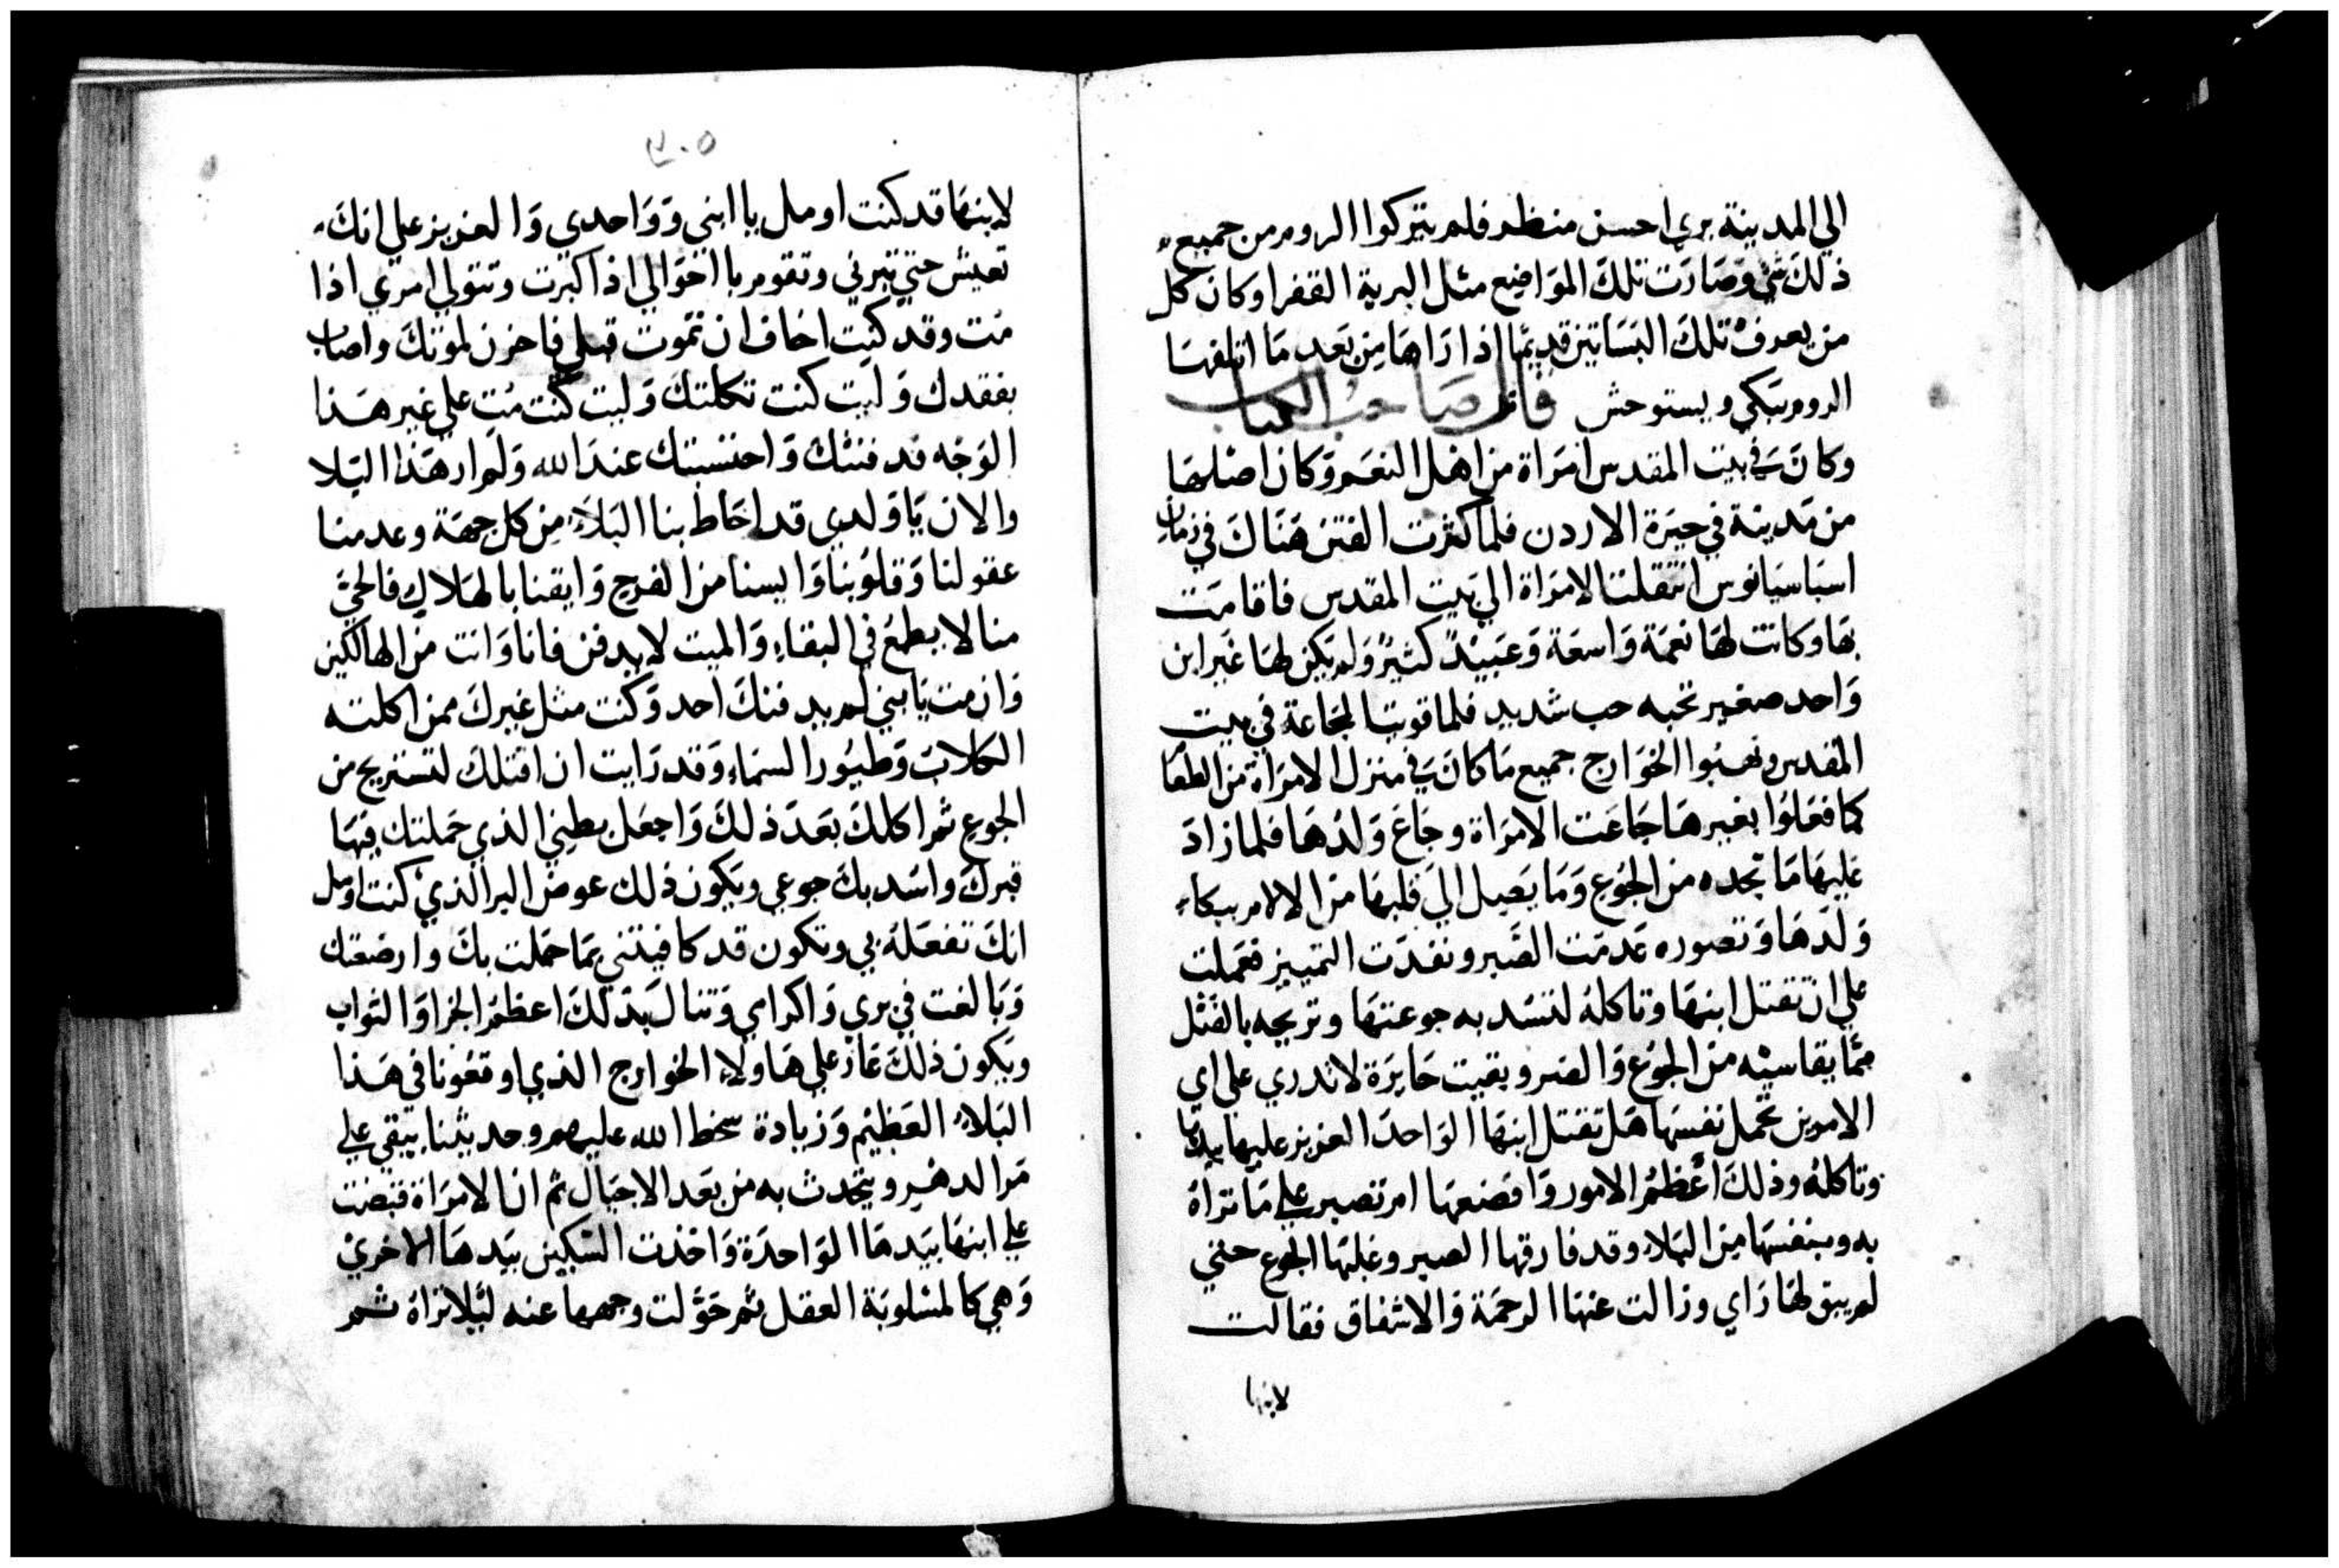 الي المدينة يري احسن منظر فلم يتركوا الروم من جميع
ذلك شي وصارت تلك المواضع مثل البرية القفرا وكان كل
من يعرف تلك البساتين قديما اذا راها من بعد ما اتلفها
الروم يبكي ويستوحش قال صاحب الكتاب
وكان في بيت المقدس امراة من اهل النعم وكان اصلها
من مدينة في حيرة الاردن فلما كثرت الفتن هناك في زمان
اسباسيانوس انتقلت الامراة الي بيت المقدس فاقامت
بها وكانت لها نعمة واسعة وعبيد كثير ولم يكن لها غير ابن
واحد صغير تحبه حب شديد فلما قويت المجاعة في بيت
المقدس ونهبوا الخوارج جميع ما كان في منزل الامراة من الطعا
كما فعلوا بغيرها جاعت الامراة وجاع ولدها فلما زاد
عليها ما تجده من الجوع وما يصل الي قلبها من الالام ببكاء
ولدها وتصوره عدمت الصبر ونفدت التمييز فعملت
علي ان تقتل ابنها وتاكله لتسد به جوعتها وتريحه بالقتل
مما يقاسيه من الجوع والضر وبقيت حايرة لا تدري على اي
الامرين تحمل نفسها هل تقتل ابنها الواحد العزيز عليها بيدها
وتاكله وذلك اعظم الامور وافضعها ام تصبر على ما تراه
به وبنفسها من البلاء وقد فارقها الصبر وغلبها الجوع حتي
لم يبق لها راي وزالت عنها الرحمة والاشفاق فقالت
لابنها
٣٠٥
لابنها قد كنت اومل يا ابني وواحدي والعزيز علي انك
تعيش حتي تبرني وتقوم باخوالي اذا كبرت وتتولي امري اذا
مت وقد كنت اخاف ان تموت قبلي فاحزن لموتك واصاب
بفقدك وليت كنت تكلتك وليت كنت مت علي غير هذا
الوجه قد فنتك واحتسبتك عند الله ولم ار هذا البلا
والان يا ولدي قد احاط بنا البلاء من كل جهة وعدمنا
عقولنا وقلوبنا وايسنا من الفرج وايقنا بالهلاك فالحي
منا لا يطمع في البقاء والميت لا يدفن فانا وانت من الهالكين
وان مت يا بني لم يدفنك احد وكنت مثل غيرك ممن اكلته
الكلاب وطيور السماء وقد رايت ان اقتلك لتستريح من
الجوع ثم اكلك بعد ذلك واجعل بطني الذي حملتك فيها
قبرك واسد بك جوعي ويكون ذلك عوض البر الذي كنت اومل
انك تفعله بي وتكون قد كافيتني بما حملت بك وارضعتك
وبالغت في بري واكرامي وتنال بذلك اعظم الجزا والثواب
ويكون ذلك عار علي هاولاء الخوارج الذي اوقعونا في هذا
البلاء العظيم وزيادة سخط الله عليهم وحديثنا يبقي علي
مر الدهر ويتحدث به من بعد الاجيال ثم ان الامراة قبضت
علي ابنها بيدها الواحدة واخذت السكين بيدها الاخري
وهي كالمسلوبة العقل ثم حولت وجهها عنه ليلا تراه ثم